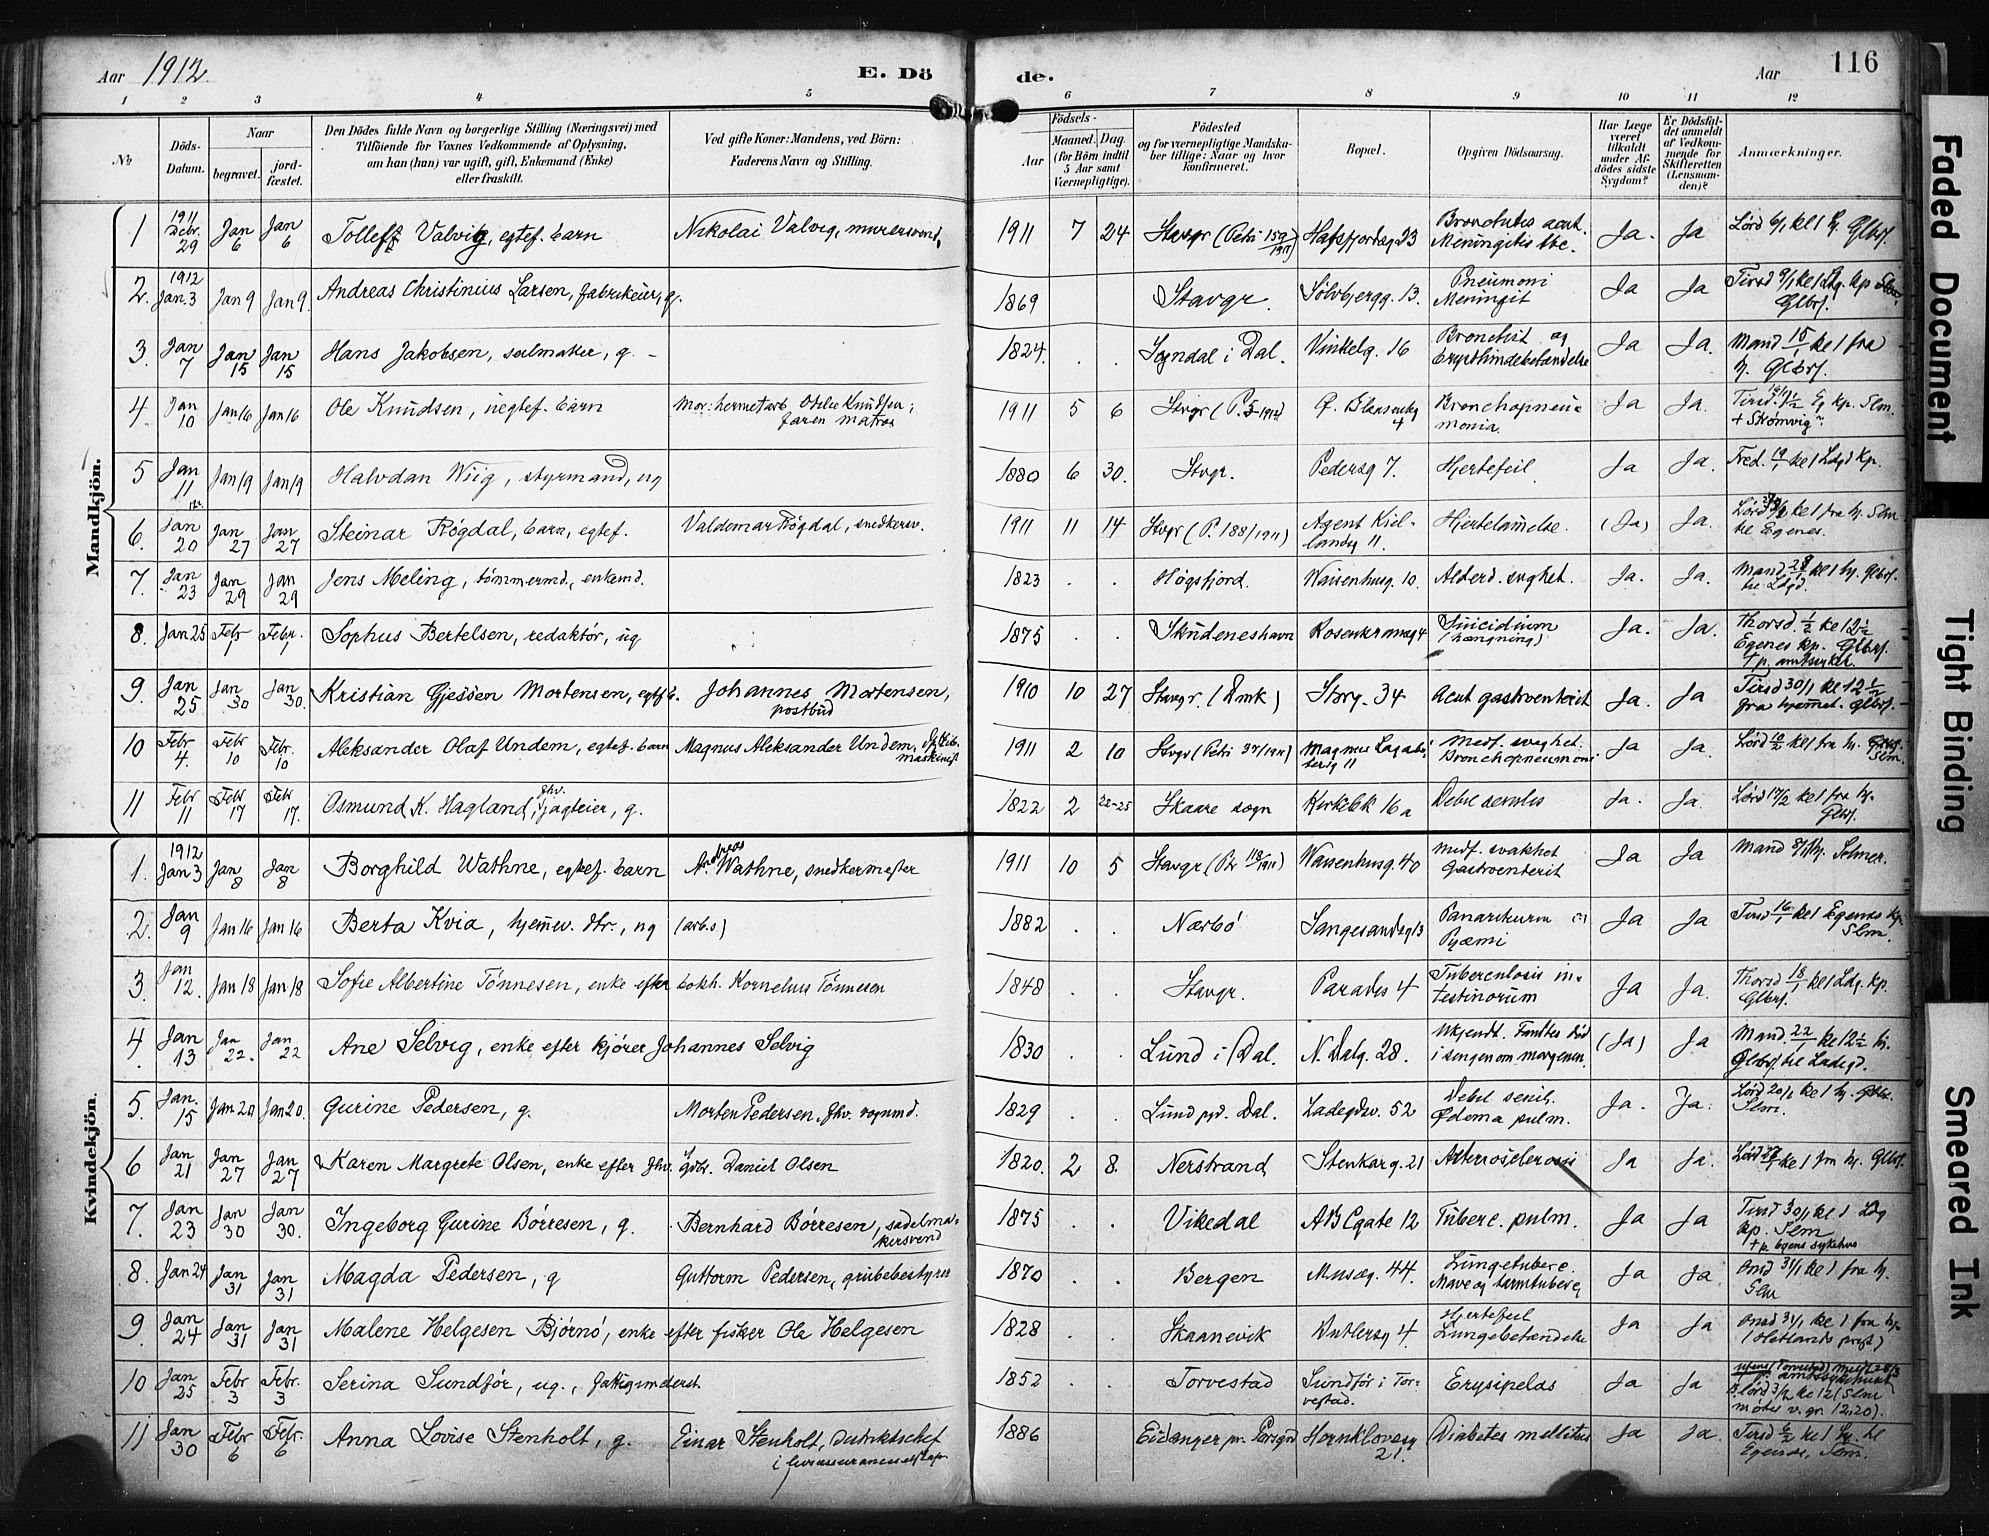 Aar 1912.
E. Dö
de.
Aar
116
1 2 3 4 5 6 7 8 9 10 11 12
No
Döds-Datum.
Naar
begravet.
jord-fæstet.
Den Dödes fulde Navn og borgerlige Stilling (Næringsvei) med
Tilföiende for Voxnes Vedkommende af Oplysning,
om han (hun) var ugift, gift, Enkemand (Enke)
eller fraskilt.
Ved gifte Koner: Mandens, ved Börn:
Faderens Navn og Stilling.
Födsels-
Aar
Maaned. Dag.
(for Börn indtil
5 Aar samt
Værnepligtige).
Födested
og for værnepligtige Mandska-
ber tillige: Naar og hvor
konfirmeret.
Bopæl.
Opgiven Dödsaarsag.
Har Læge
været
tilkaldt
under Af-
dödes sidste
Sygdom?
Er Dödsfal-
det anmeldt
af Vedkom-
mende for
Skifteretten
(Lensman-
den)?
Anmærkninger.
Mandkjön.
1 1911 Debr. 29 Jan 6 Jan 6 Valvig, egtef. barn Nikolai Valvig, murersvend. 1911 7 24 Stavgr Hafsfjordsg 23 Meningitis Ja. Ja
2. 1912 Jan. 3 Jan 9 Jan 9. Andreas Christinius Larsen, fabrikeier, g. 1869 Stavgr. Sölvbjergg. 13. Pneumoni Meningit Ja Ja
3 Jan 7 Jan 15 Jan 15 Hans Jakobsen, seilmaker, g. - 1824. . . Sogndal i Dal. Vinkelg. 16 Bronchit og Ja Ja. Mand 15/1 kl 1 fra
4 Jan 10 Jan 16 Jan 16 Ole Knudsen, uegtef. barn faren matros 1911 5 6 4 Bronchopneumonia. Ja Ja
5 Jan 11 Jan 19 Jan 19 Halvdan Wiig, styrmand, ug 1880 6 30. Stvgr. Pedersg 7. Hjertefeil Ja Ja. Fred. 19/1 kl 1 Ldgd kp.
6. Jan 20 Jan 27 Jan 27 Steinar Rögdal, barn, egtef. Valdemar Rögdal, snedkersv. 1911 11 14 Stvgr (P. 188/1911) Agent Kiellandsg 11. Hjertelamelse. (Ja) Ja. til Egenes.
7. Jan 23 Jan 29 Jan 29 Jens Meling, tömmermd., enkemd. 1823 . . Högsfjord. Waisenhusg. 10. Alderd. svghet. Ja. Ja.
8. Jan 25 Sophus Bertelsen, redaktör, ug 1875 . . Skudeneshavn Suicidium (hængning) Ja. Ja. Egenes kp. Glbrf.
9. Jan 25 Jan 30 Jan 30. Kristian Gjessen Mortensen, Johannes Mortensen, postbud 1910 10 27 Storg. 34 Acut gastroenterit Ja. Ja Tirsd 30/1 kl 12 1/2 fra hjemmet. Glbrf.
10 Febr 4. Febr 10 Febr. 10 Aleksander Olaf Undem, egtef. barn Magnus Aleksander Undem, maskinist 1911 2 10 Stvgr (Petri 37/1911) Medf. svghet. Bronchopneumoni Ja Ja Lörd 10/2 kl 1 fra hj. Slm.
11 Febr 11 Febr 17 Febr 17. Osmund K. Hagland, fhv. jagteier, g. 1822 2 22-25 Skaare sogn Kirkebk 16a Debil senilis Ja. Ja. Lörd 17/2 kl 1 fra hj. Glbrf.
Kvindekjön.
1. 1912 Jan 3 Jan 8 Jan 8 Borghild Wathne, egtef. barn Andreas Wathne, snedkermester 1911 10 5 Waisenhusg. 40 Medf. svakhet Gastroenterit Ja Ja Mand 8/1 hj. Selmer.
2. Jan 9 Jan 16 Jan 16 Berta Kvia, hjemmev. dtr., ug (arb.s) 1882 . . Nærbö Sangesandsg 13 Pyæmi Ja Ja Tirsd 16/1 kl 1 Egenes kp. Slm.
3 Jan 12. Jan 18 Jan 18 Sofie Albertine Tönnesen, enke efter bokh. Kornelius Tönnesen 1848 . . Stavgr. Paradis 4 Tuberculosis intestinorum Ja Ja. Thorsd 18/1 kl 1 Ldg. kp. Glbrf.
4 Jan 13 Jan 22. Jan 22 Ane Selvig, enke efter kjörer Johannes Selvig 1830 . . Lund i Dal. N. Dalg. 28. Ukjendt. Fandtes död i sengen om morgenen. (Ja) Ja Mand. 22/1 kl 12 1/2 hj. Glbrf. til Ladegd.
5. Jan. 15 Jan 20 Jan 20. Gurine Pedersen, g. Morten Pedersen, fhv. vognmd. 1829 . . Lund pgd. Dal. Ladegdsv. 52 Debil senil. Ödema pulm. Ja. Ja. Lörd 20/1 kl 1 hj. Slm.
6 Jan 21 Jan 27 Jan 27 Karen Margrete Olsen, enke efter fhv. gdbr. Daniel Olsen 1820. 2 8. Nerstrand Stenkarg. 21 Arterioselerosis Ja Ja. kl 1 fra hj. Glbrf.
7. Jan 23 Jan 30 Jan 30. Ingeborg Gurine Börresen, g. Bernhard Börresen, sadelmakersvend 1875 . . Vikedal ABCgate 12 Tuberc. pulm. Ja Ja Tirsd 30/1 kl 1 Ldg kp. Slm
8. Jan 24 Jan 31 Jan 31 Magda Pedersen, g Guttorm Pedersen, grubebestyrer 1870 . . Bergen Musæg. 44. Lungetuberc. Mave og tarmtuberc Ja Ja Onsd 31/1 kl 1 fra hj. Slm
9. Jan 24 Jan 31 Jan 31 Malene Helgesen Björnö, enke efter fisker Ole Helgesen 1828 . . Skaanevik Hjertefeil Lungebetændelse Ja Ja Onsd 31/1 kl 1 fra hj.
10 Jan 25 Febr 3 Febr. 3 Serina Sundför, ug., fattigunderst. 1852 . . Torvestad Sundför i Torvestad. Erysipelas Ja Ja
11 Jan 30 Febr 6 Febr. 6 Anna Lovise Stenholt, g. Einar Stenholt, 1886 Eidanger pr. Porsgrd Hornkloversg 21. Diabetes mellitus Ja Ja. Tirsd 6/2 kl 1 hj. til Egenes, Slm.
Faded Document
Tight Binding
Smeared Ink